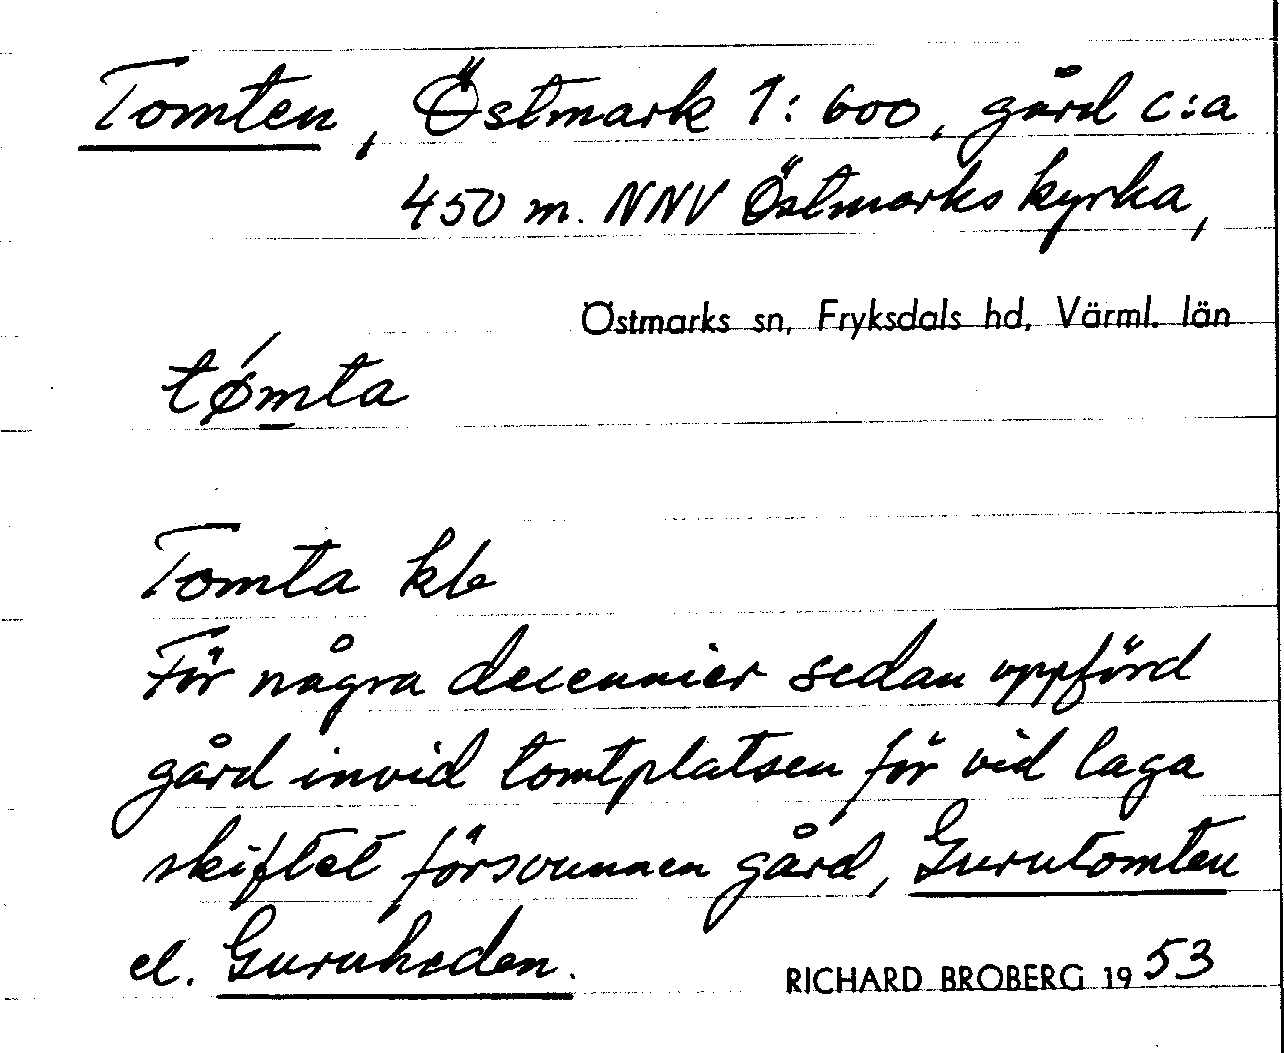 Tomten, Östmark 1:600, gård c:a
450 m. NNV Östmarks kyrka,
Östmarks sn, Fryksdals hd, Värml. län
tǿmta
Tomta kb
För några decennier sedan uppförd
gård invid tomtplatsen för vid laga
skiftet försvunnen gård, Gurutomten
el. Guruheden.
RICHARD BROBERG 1953